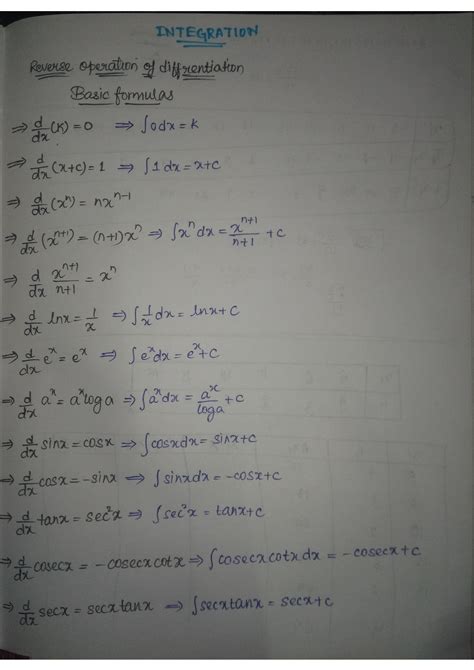 INTEGRATION
Reverse operation of diffrentiation
Basic formulas
⇒ d/dx (K) = 0 ⇒ ∫0dx = K
⇒ d/dx (x+c) = 1 ⇒ ∫1dx = x+c
⇒ d/dx (xⁿ) = nxⁿ⁻¹
⇒ d/dx (xⁿ⁺¹) = (n+1)xⁿ ⇒ ∫xⁿdx = xⁿ⁺¹/n+1 + c
⇒ d/dx xⁿ⁺¹/n+1 = xⁿ
⇒ d/dx lnx = 1/x ⇒ ∫1/x dx = lnx + c
⇒ d/dx eˣ = eˣ ⇒ ∫eˣdx = eˣ+c
⇒ d/dx aˣ = aˣloga ⇒ ∫aˣdx = aˣ/loga + c
⇒ d/dx sinx = cosx ⇒ ∫cosxdx = sinx+c
⇒ d/dx cosx = -sinx ⇒ ∫sinxdx = -cosx+c
⇒ d/dx tanx = sec²x ⇒ ∫sec²x = tanx+c
⇒ d/dx cosecx = -cosecxcotx ⇒ ∫cosecxcotxdx = -cosecx+c
⇒ d/dx secx = secxtanx ⇒ ∫secxtanx = secx+c